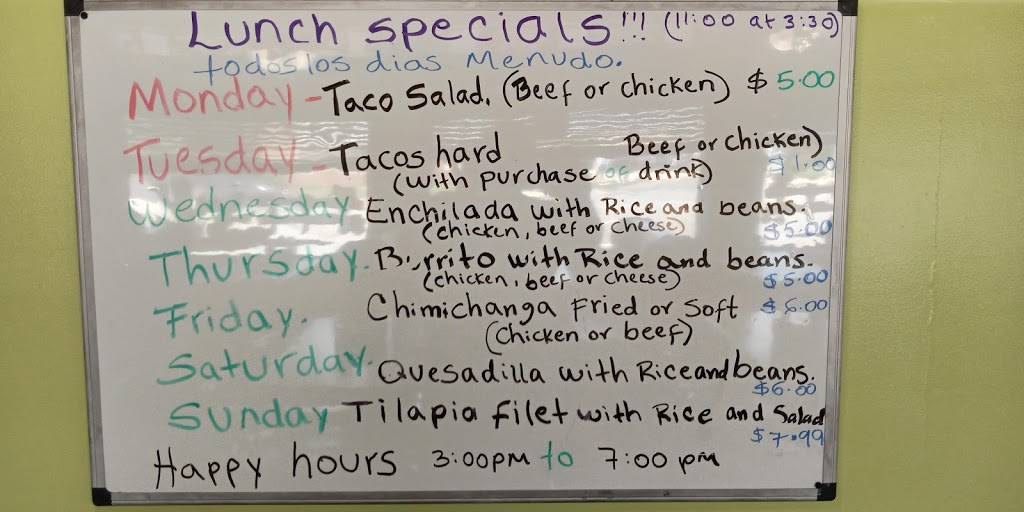 Lunch specials!!! (11:00 at 3:30)
todos los dias Menudo.
Monday - Taco Salad. (Beef or chicken) $ 5.00
Tuesday - Tacos hard Beef or chicken)
(with purchase of drink) $ 1.00
Wednesday Enchilada with Rice and beans.
(chicken, beef or cheese) $5.00
Thursday. Burrito with Rice and beans.
(chicken, beef or cheese) $5.00
Friday. Chimichanga Fried or Soft $ 6.00
(Chicken or beef)
Saturday. Quesadilla with Rice and beans.
$6.00
Sunday Tilapia filet with Rice and Salad
$7.99
Happy hours 3:00pm to 7:00 pm